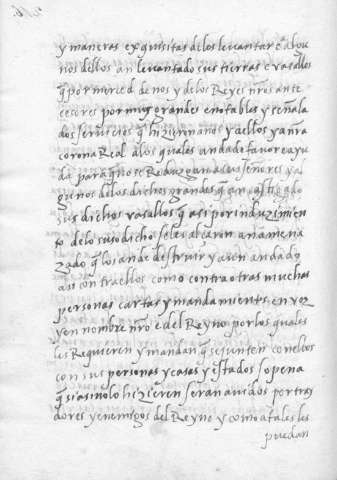 y maneras exquisitas de los levantar e algu
nos dellos an levantado sus tierras e vasallos
q̃ por merced de nos y de los Reyes nr̃os ante
cesores por muy grandes e notables y señala
dos servicios q̃ hizieron a nos y a ellos y a nr̃a
corona Real a los quales an dado favor e ayu
da para q̃ no se Reduzgan a sus señores y al
gunos de los dichos grandes q̃ an castigado
sus dichos vasallos q̃ asi por induzimien
to de lo susodicho se les alçaron an amena
zado q̃ los an de destruyr y a ven an dado
asi contra ellos como contra otras muchas
personas cartas y mandamientos en voz
y en nombre nr̃o e del Reyno por los quales
les Requieren y mandan q̃ se junten con ellos
con sus personas y casas y estados so pena
q̃ si asi no lo hizieren seran avidos por tray
dores y enemigos del Reyno y como a tales les
puedan